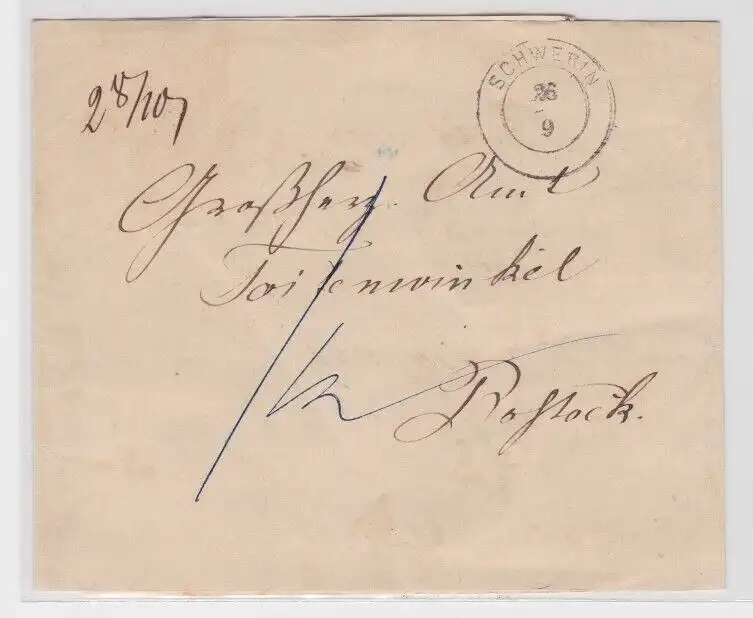 SCHWERIN
26
9
Großherz. Amt
Toitenwinkel
Rostock.